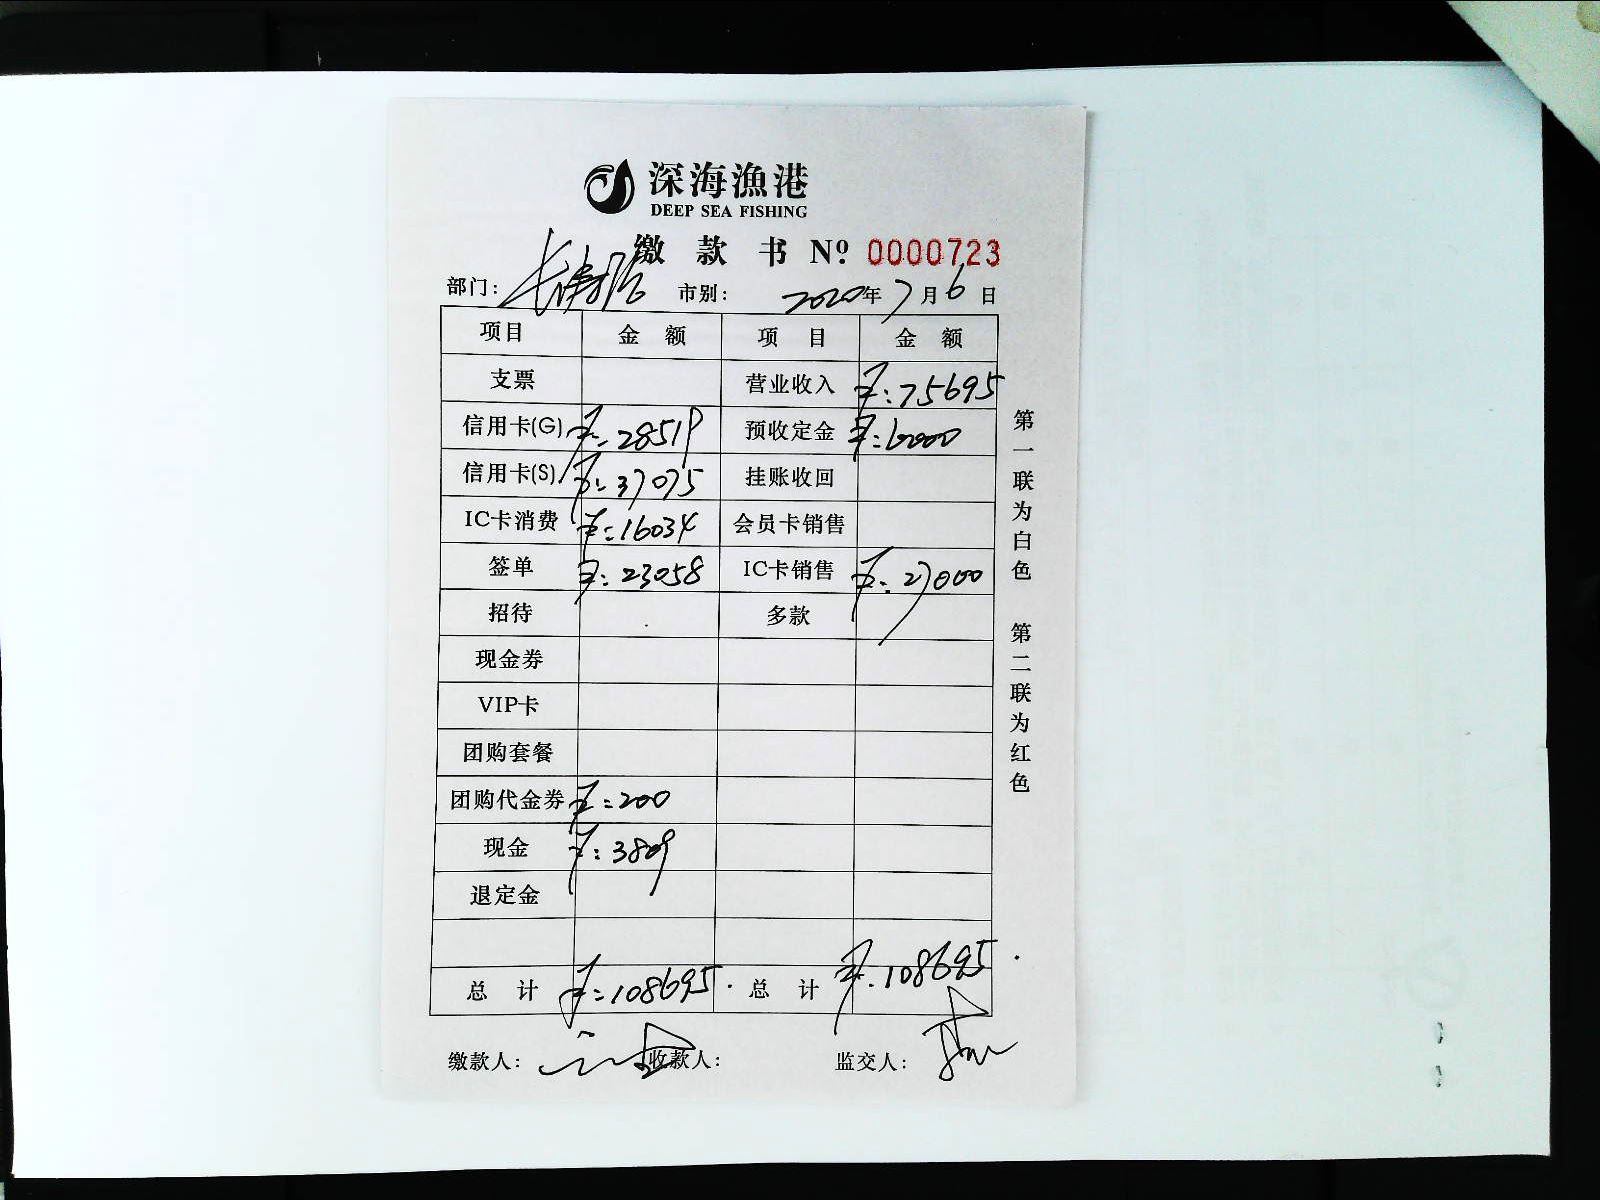 深海漁港
DEEP SEA FISHING
缴款书 Nº 0000723
部门: 市别: 2020年7月6日
项目 金额 项目 金额
支票 营业收入 ¥:75695
信用卡(G) ¥:28519 预收定金 ¥:6000
信用卡(S) ¥:37075 挂账收回
IC卡消费 ¥:16034 会员卡销售
签单 ¥:23058 IC卡销售 ¥:27000
招待 多款
现金券
VIP卡
团购套餐
团购代金券 ¥:200
现金 ¥:3809
退定金
总计 ¥:108695. 总计 ¥:108695.
缴款人: 收款人: 监交人:
第一联为白色 第二联为红色